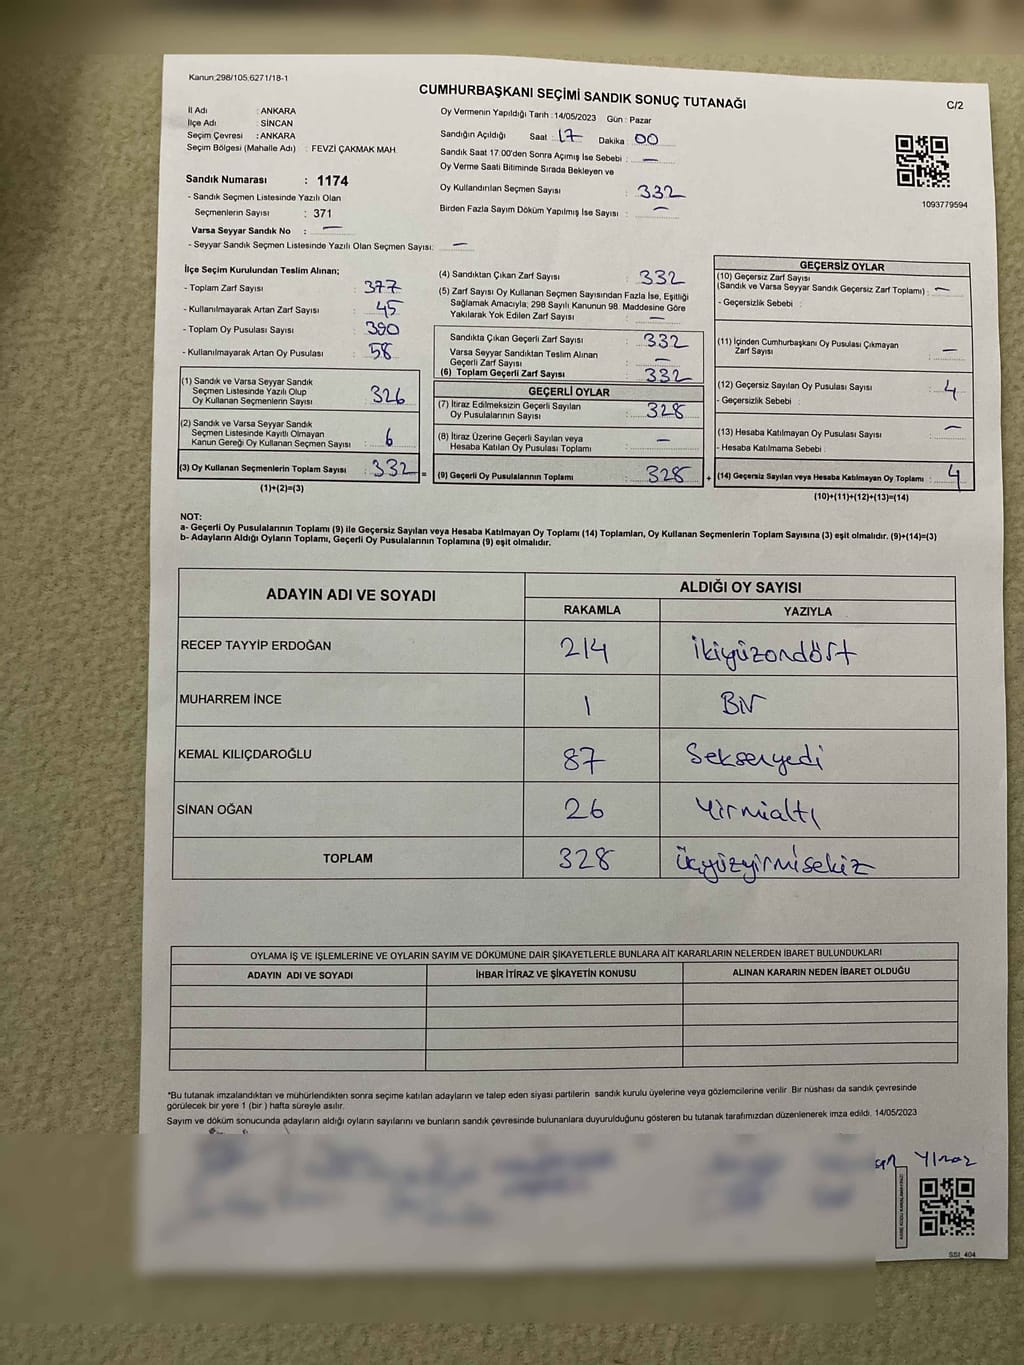 Kanun:298/105,6271/18-1
CUMHURBAŞKANI SEÇİMİ SANDIK SONUÇ TUTANAĞI
C/2
İl Adı : ANKARA
İlçe Adı : SİNCAN
Seçim Çevresi : ANKARA
Seçim Bölgesi (Mahalle Adı) : FEVZİ ÇAKMAK MAH.
Sandık Numarası : 1174
- Sandık Seçmen Listesinde Yazılı Olan
Seçmenlerin Sayısı : 371
Varsa Seyyar Sandık No : —
- Seyyar Sandık Seçmen Listesinde Yazılı Olan Seçmen Sayısı: —
Oy Vermenin Yapıldığı Tarih :14/05/2023 Gün : Pazar
Sandığın Açıldığı Saat : 17 Dakika : 00
Sandık Saat 17:00'den Sonra Açımış İse Sebebi : —
Oy Verme Saati Bitiminde Sırada Bekleyen ve
Oy Kullandırılan Seçmen Sayısı : 332
Birden Fazla Sayım Döküm Yapılmış İse Sayısı : —
1093779594
İlçe Seçim Kurulundan Teslim Alınan;
- Toplam Zarf Sayısı : 377
- Kullanılmayarak Artan Zarf Sayısı : 45
- Toplam Oy Pusulası Sayısı : 390
- Kullanılmayarak Artan Oy Pusulası : 58
(1) Sandık ve Varsa Seyyar Sandık
Seçmen Listesinde Yazılı Olup
Oy Kullanan Seçmenlerin Sayısı : 326
(2) Sandık ve Varsa Seyyar Sandık
Seçmen Listesinde Kayıtlı Olmayan
Kanun Gereği Oy Kullanan Seçmen Sayısı : 6
(3) Oy Kullanan Seçmenlerin Toplam Sayısı : 332 =
(1)+(2)=(3)
(4) Sandıktan Çıkan Zarf Sayısı : 332
(5) Zarf Sayısı Oy Kullanan Seçmen Sayısından Fazla İse, Eşitliği
Sağlamak Amacıyla; 298 Sayılı Kanunun 98. Maddesine Göre
Yakılarak Yok Edilen Zarf Sayısı : —
Sandıkta Çıkan Geçerli Zarf Sayısı : 332
Varsa Seyyar Sandıktan Teslim Alınan
Geçerli Zarf Sayısı : —
(6) Toplam Geçerli Zarf Sayısı : 332
GEÇERLİ OYLAR
(7) İtiraz Edilmeksizin Geçerli Sayılan
Oy Pusulalarının Sayısı : 328
(8) İtiraz Üzerine Geçerli Sayılan veya
Hesaba Katılan Oy Pusulası Toplamı : —
(9) Geçerli Oy Pusulalarının Toplamı : 328 +
GEÇERSİZ OYLAR
(10) Geçersiz Zarf Sayısı
(Sandık ve Varsa Seyyar Sandık Geçersiz Zarf Toplamı) : —
- Geçersizlik Sebebi :
(11) İçinden Cumhurbaşkanı Oy Pusulası Çıkmayan
Zarf Sayısı : —
(12) Geçersiz Sayılan Oy Pusulası Sayısı : 4
- Geçersizlik Sebebi :
(13) Hesaba Katılmayan Oy Pusulası Sayısı : —
- Hesaba Katılmama Sebebi :
(14) Geçersiz Sayılan veya Hesaba Katılmayan Oy Toplamı : 4
(10)+(11)+(12)+(13)=(14)
NOT:
a- Geçerli Oy Pusulalarının Toplamı (9) ile Geçersiz Sayılan veya Hesaba Katılmayan Oy Toplamı (14) Toplamları, Oy Kullanan Seçmenlerin Toplam Sayısına (3) eşit olmalıdır. (9)+(14)=(3)
b- Adayların Aldığı Oyların Toplamı, Geçerli Oy Pusulalarının Toplamına (9) eşit olmalıdır.
ADAYIN ADI VE SOYADI
ALDIĞI OY SAYISI
RAKAMLA YAZIYLA
RECEP TAYYİP ERDOĞAN 214 ikiyüzondört
MUHARREM İNCE 1 Bir
KEMAL KILIÇDAROĞLU 87 Seksenyedi
SİNAN OĞAN 26 Yirmialtı
TOPLAM 328 üçyüzyirmisekiz
OYLAMA İŞ VE İŞLEMLERİNE VE OYLARIN SAYIM VE DÖKÜMÜNE DAİR ŞİKAYETLERLE BUNLARA AİT KARARLARIN NELERDEN İBARET BULUNDUKLARI
ADAYIN ADI VE SOYADI İHBAR İTİRAZ VE ŞİKAYETİN KONUSU ALINAN KARARIN NEDEN İBARET OLDUĞU
*Bu tutanak imzalandıktan ve mühürlendikten sonra seçime katılan adayların ve talep eden siyasi partilerin sandık kurulu üyelerine veya gözlemcilerine verilir. Bir nüshası da sandık çevresinde
görülecek bir yere 1 (bir ) hafta süreyle asılır.
Sayım ve döküm sonucunda adayların aldığı oyların sayılarını ve bunların sandık çevresinde bulunanlara duyurulduğunu gösteren bu tutanak tarafımızdan düzenlenerek imza edildi. 14/05/2023
SSI_404